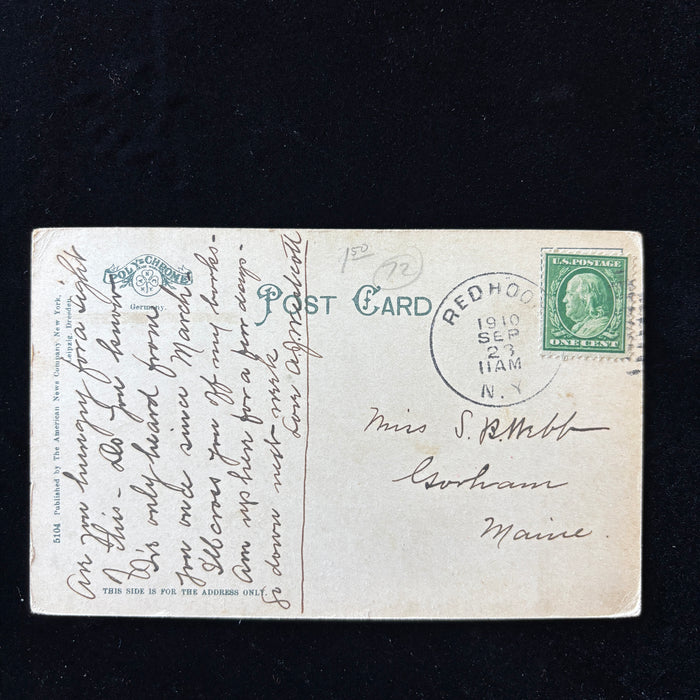 Are you hungry for a sight
of this - Do you know
I've only heard from
you once since March
I'll cross you off my books -
Am up here for a few days -
go down next week
Love A.J.
5104 Published by The American News Company New York.
Leipzig Dresden.
POLY-CHROME
Germany.
POST CARD
THIS SIDE IS FOR THE ADDRESS ONLY.
1.50
72
RED HOO
1910
SEP
23
11 AM
N.Y.
U.S. POSTAGE
ONE CENT
Miss S. B. Webb
Gorham
Maine.